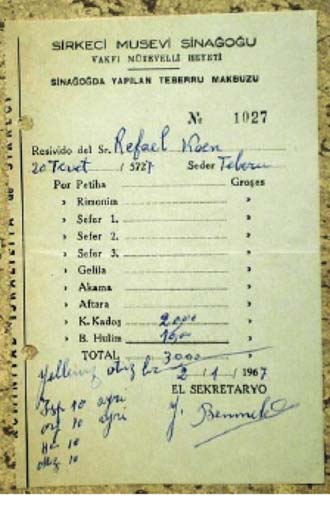 SİRKECİ MUSEVİ SİNAGOĞU
VAKFI MÜTEVELLİ HEYETİ
SİNAGOĞDA YAPILAN TEBERRU MAKBUZU
№ 1027
Resivido del Sr. Refael Koen
20 Tevet / 5727 Seder Teberu
Por Petiha Groşes
» Rimonim »
» Sefer 1. »
» Sefer 2. »
» Sefer 3. »
» Gelila »
» Akama »
» Aftara »
» K. Kadoş 2000 »
» B. Hulim 1000 »
TOTAL 3000 »
2 / 1 / 1967
EL SEKRETARYO
10 ayri
10 ayri
10
10